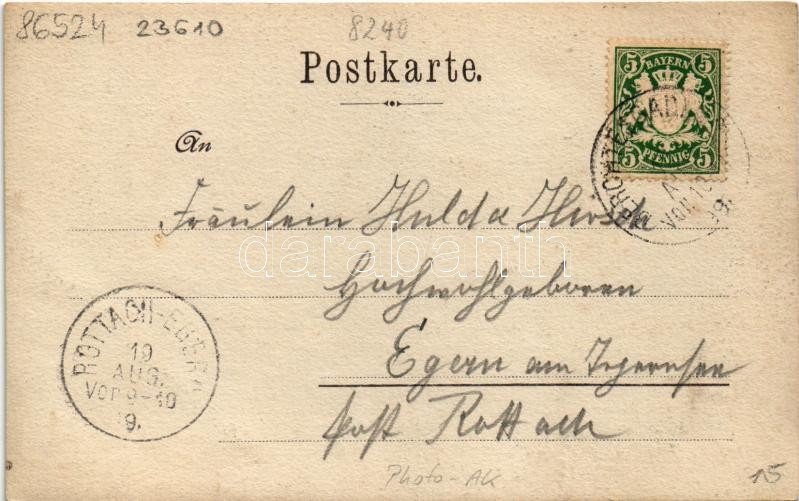 86524 23610 8240
Postkarte.
5 BAYERN 5
5 PFENNIG 5
An
VOR 10
Fräulein Hulda Hirsch
darabanth
Hochwohlgeboren
ROTTACH-EGERN
19
AUG.
Vor 9-10
9.
Egern am Tegernsee
Post Rottach
Photo-AK
15